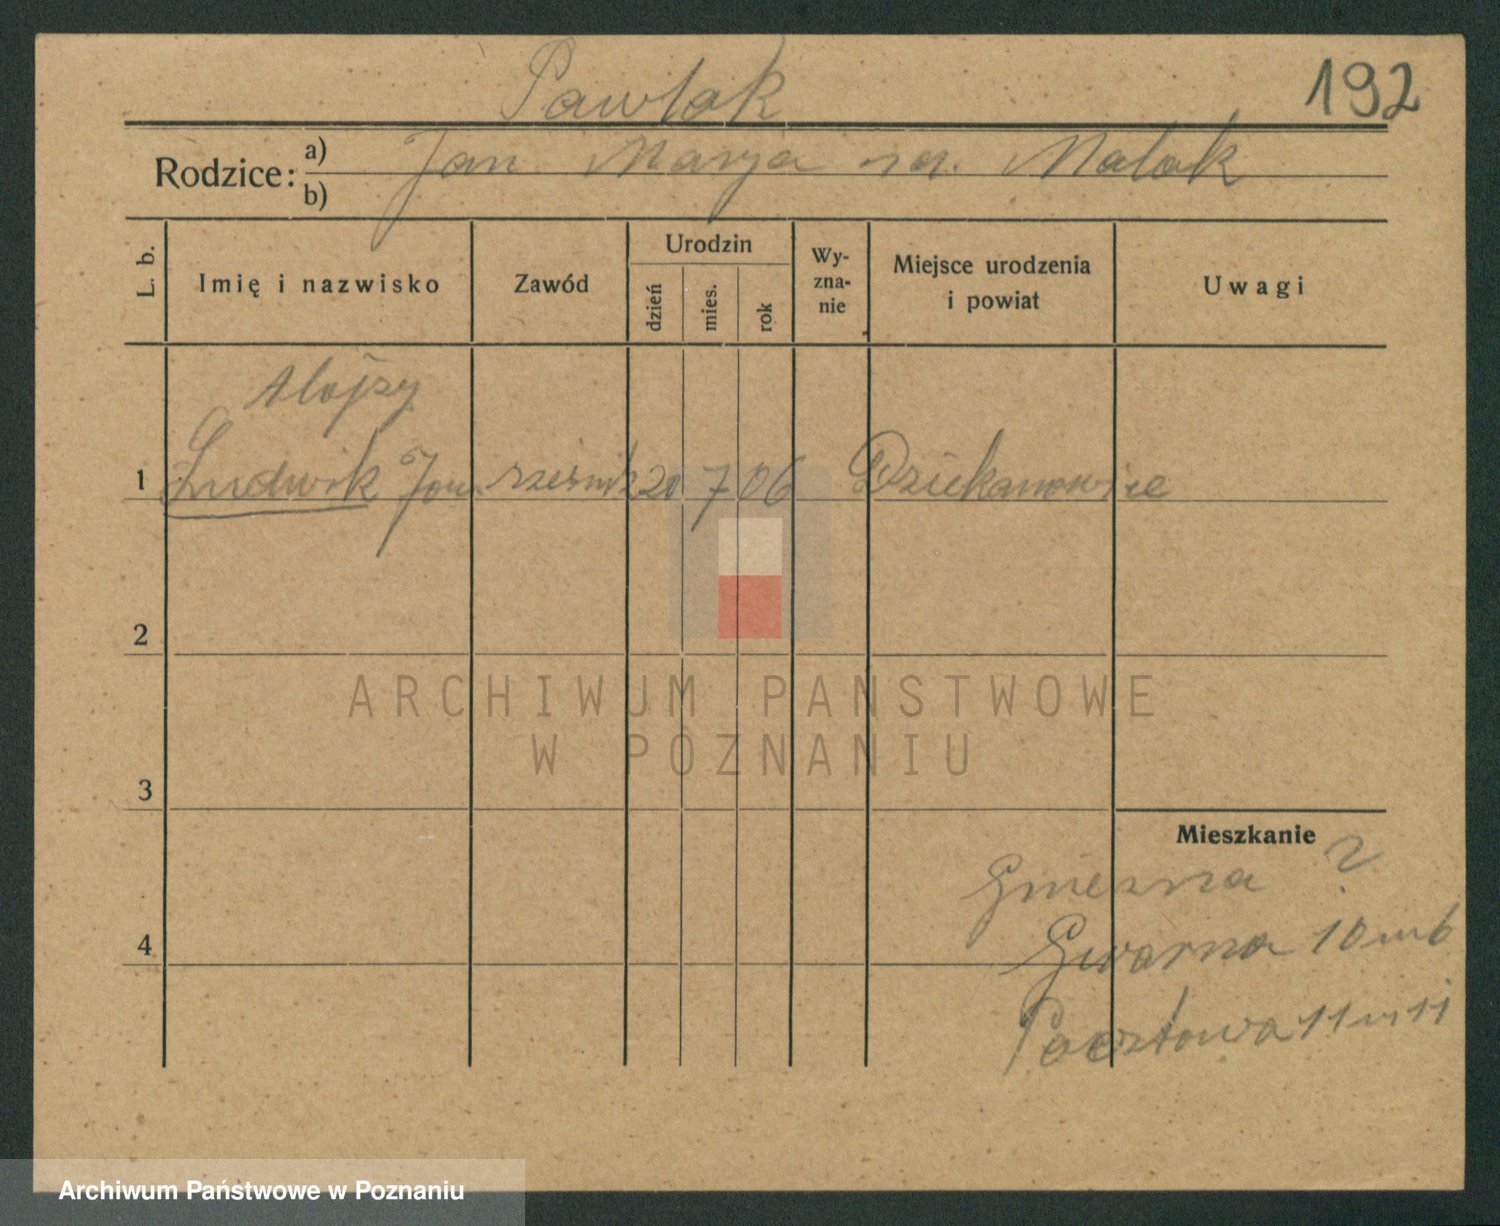 Pawlak
192
Rodzice: a) Jan Marja
b)
L. b.
Imię i nazwisko
Zawód
Urodzin
dzień
mies.
rok
Wy-
zna-
nie
Miejsce urodzenia
i powiat
Uwagi
Alojzy
1 Ludwik Jan rzeźnik 20 7 06 Dziekanowice
2
ARCHIWUM PAŃSTWOWE
W POZNANIU
3
Mieszkanie
Gniezna ?
4 Gwarna 10 m 6
Pocztowa 11 m 11
Archiwum Państwowe w Poznaniu